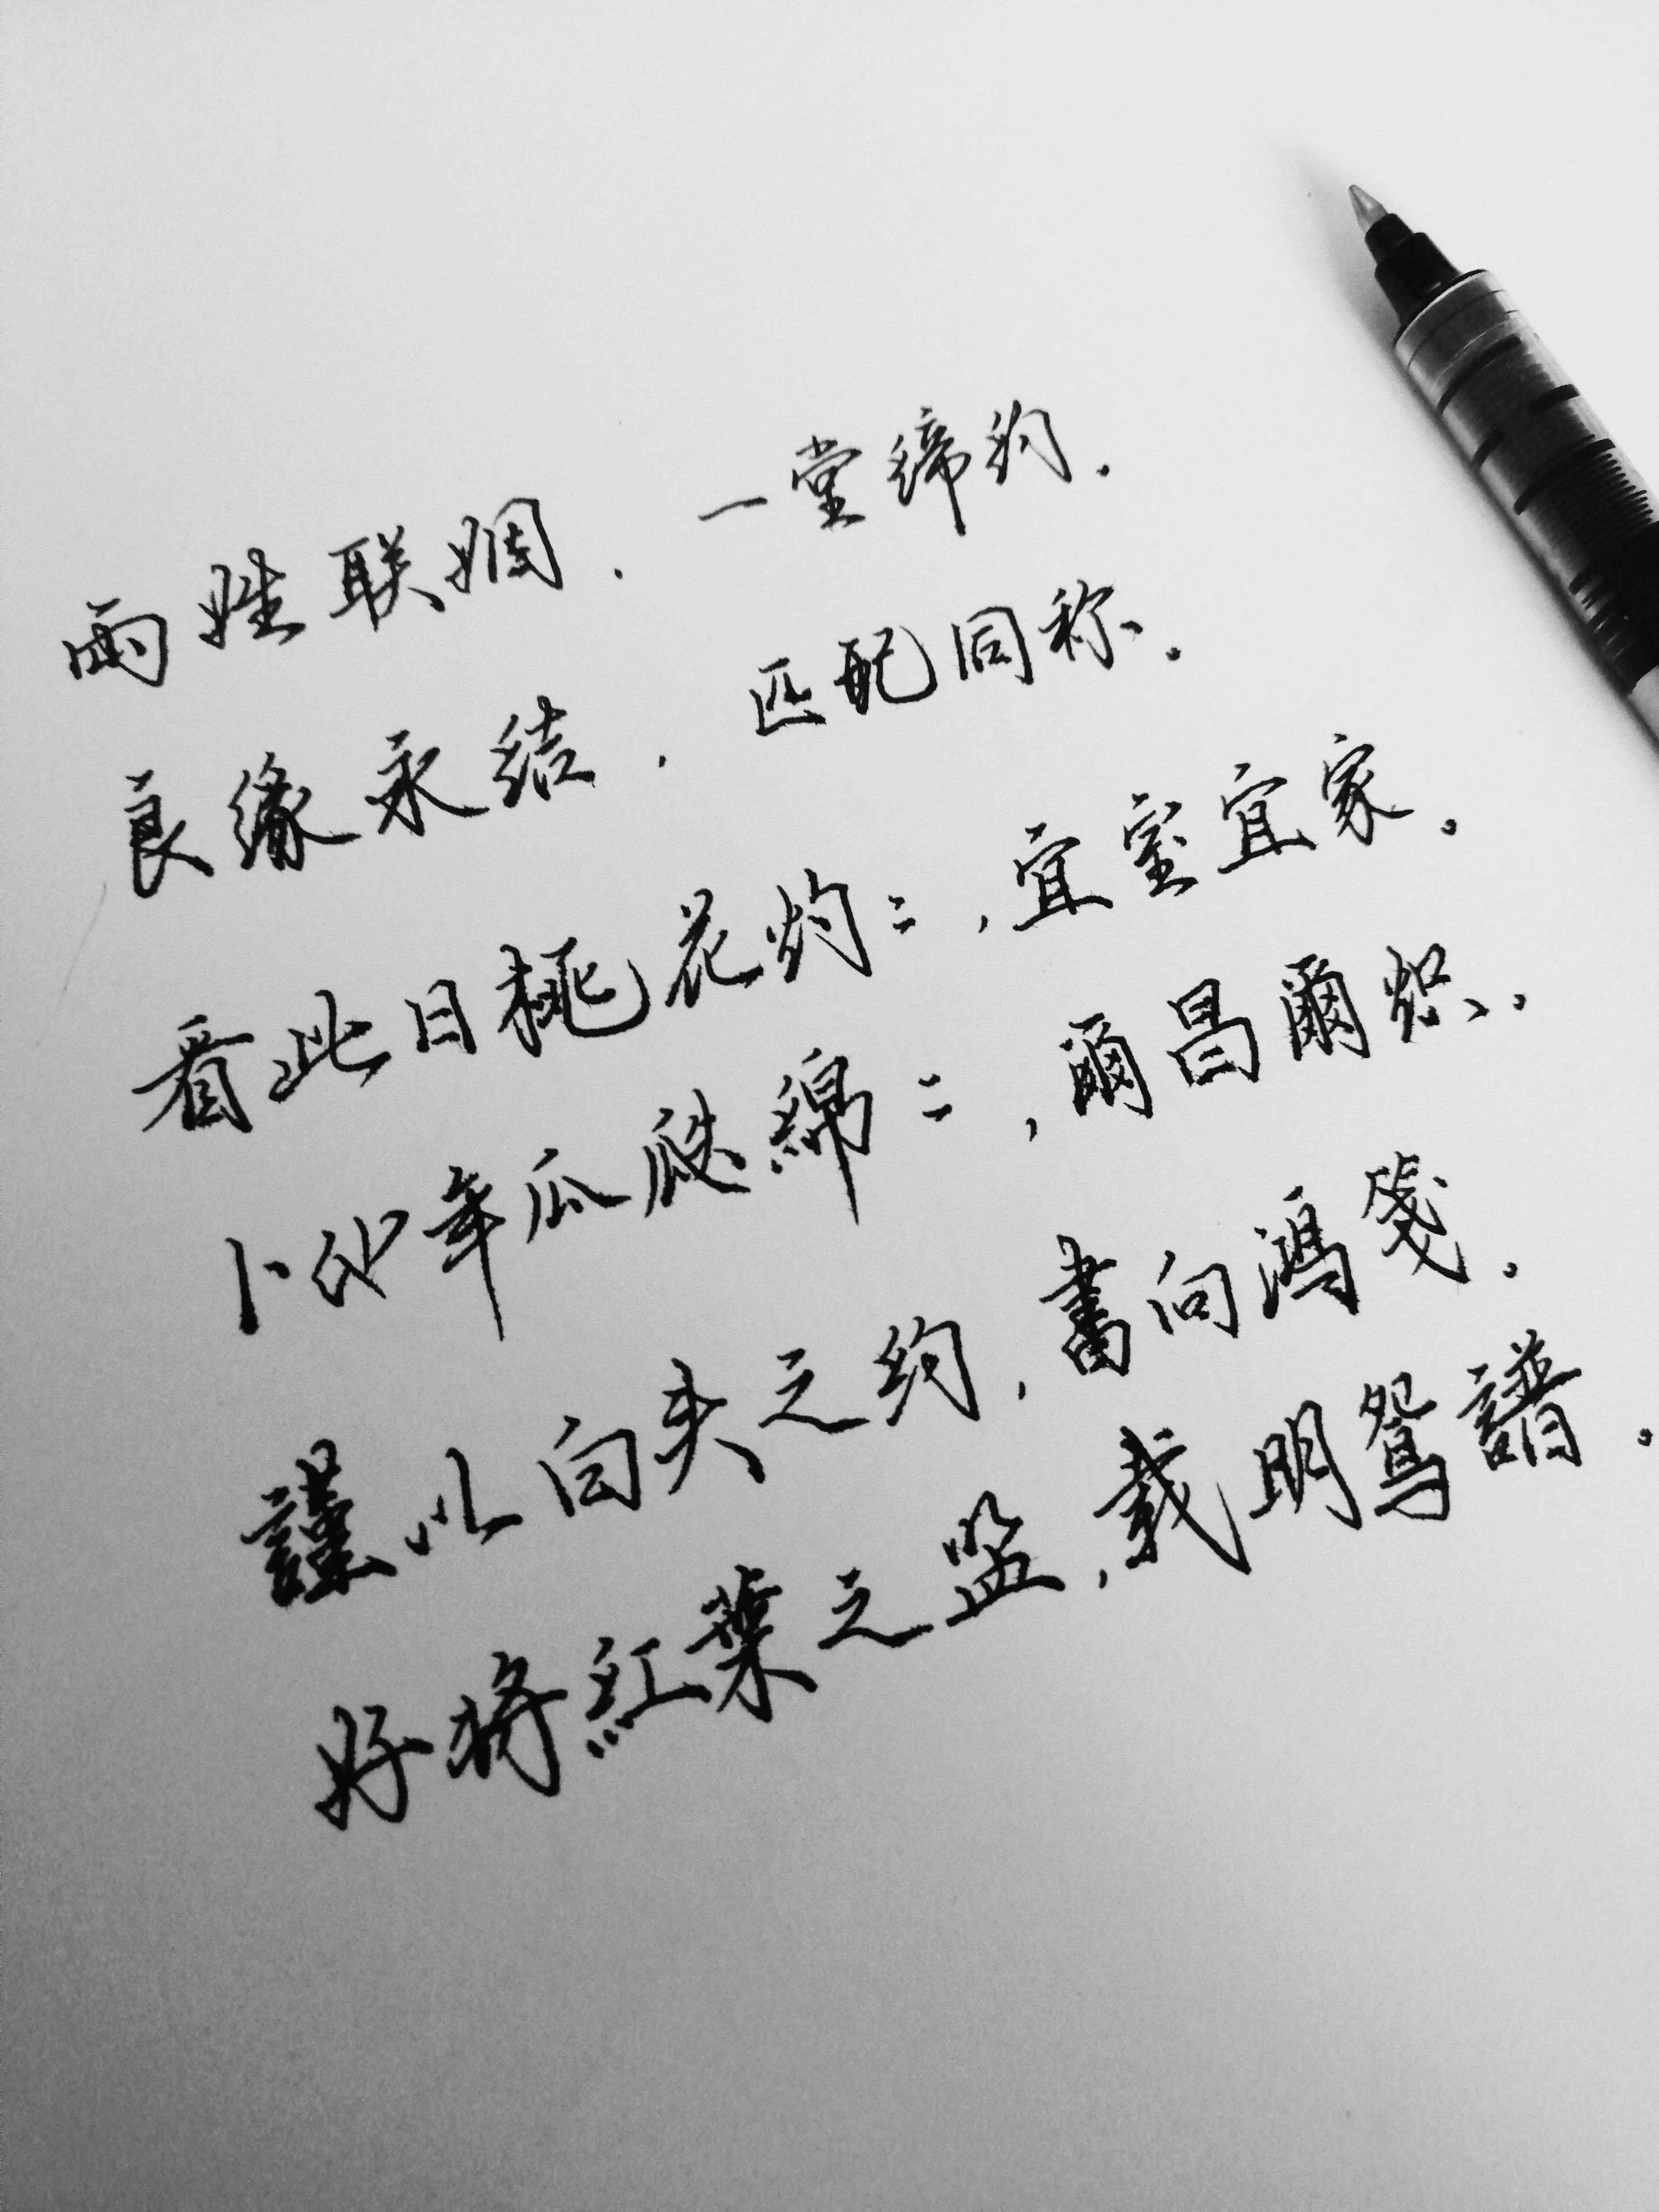 両姓联姻，一堂缔约.
良缘永结，匹配同称.
看此日桃花灼:，宜室宜家.
卜他年瓜瓞綿:，爾昌爾炽.
謹以白头之约，書向鴻箋.
好将紅葉之盟，载明鴛譜.